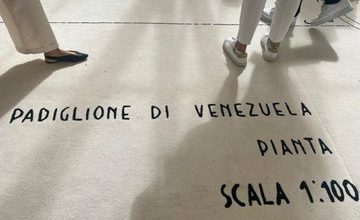 PADIGLIONE DI VENEZUELA
PIANTA
SCALA 1:100